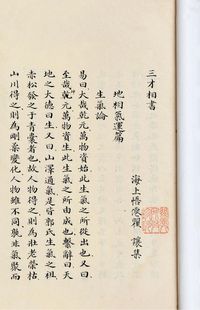 三才相書
海上悟澂頤讓集
地相氣運篇
生氣論
易曰大哉乾元萬物資始此生氣之所從出也又曰
至哉坤元萬物資生此生氣之所由成也繫辭曰天
地之大德曰生又曰山澤通氣是皆郭氏生氣之祖
赤松發之于青囊者也故人物得之則為壯老榮枯
山川得之則為剛柔變化人物雖不同孰非氣聚而